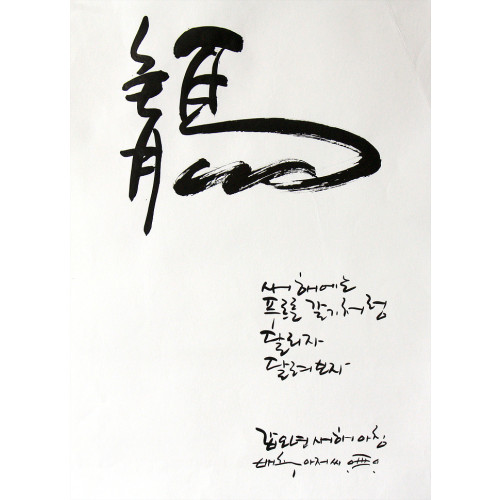 靑馬
새해에는
푸르른 갈기처럼
달리자
달려보자
갑오년 새해 아침
아저씨